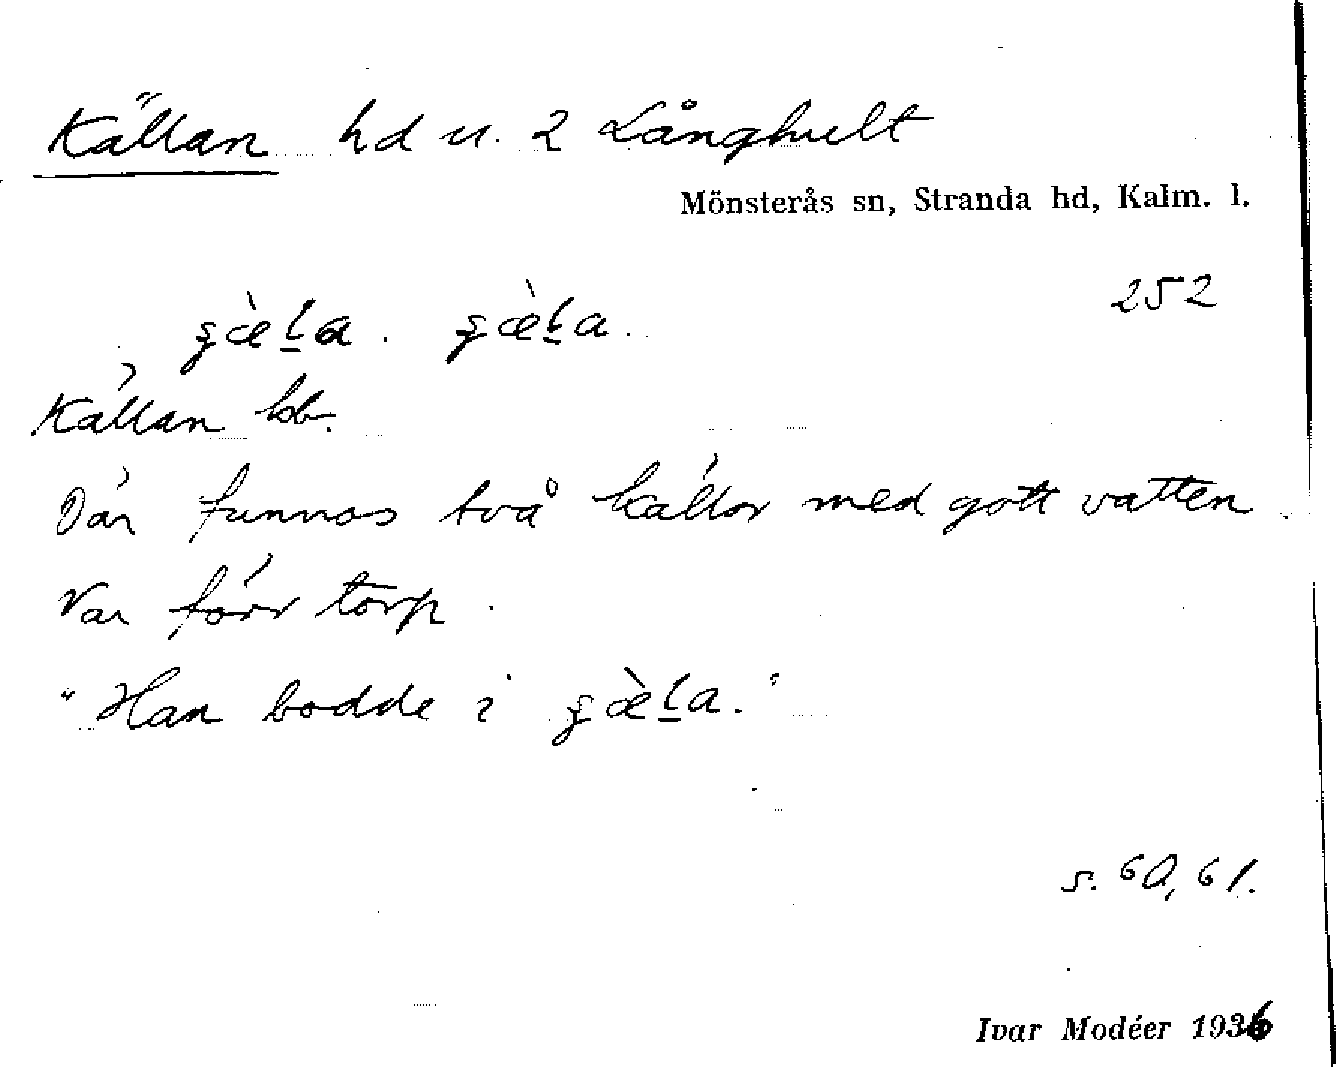 Källan hd u. 2 Långhult
Mönsterås sn, Stranda hd, Kalm. l.
252
Källan
Där funnos två källor med gott vatten
Var förr torp.
"Han bodde i
s. 60, 61.
Ivar Modéer 1936